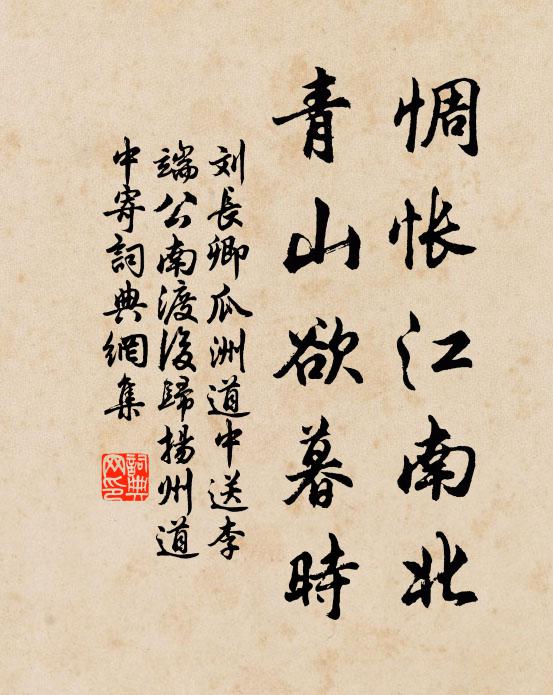 惆怅江南北
青山欲暮時
刘長卿瓜洲道中送李
端公南渡後歸揚州道
中寄詞典網集
詞典
网印